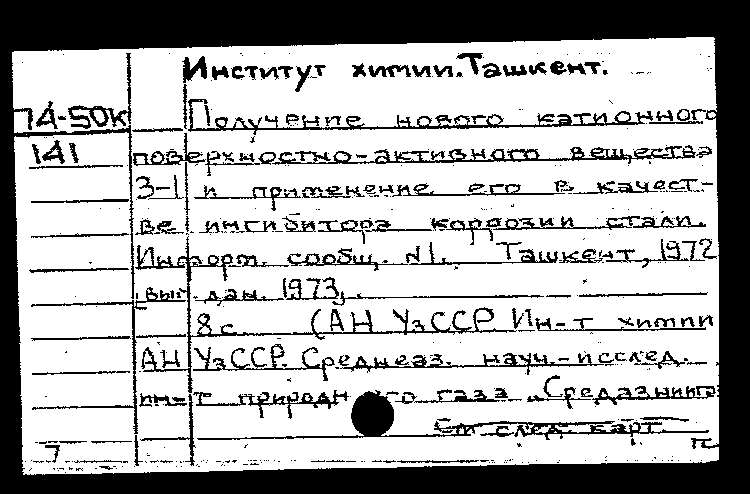 Институт химии. Ташкент.
74-50к Получение нового катионного
141 поверхностно-активного вещества
З-1 и применение его в качест-
ве ингибитора коррозии стали.
Информ. сообщ. №1. Ташкент, 1972
[вып. дан. 1973].
8 с. (АН УзССР. Ин-т химии
АН УзССР. Среднеаз. науч.-исслед.
ин-т природного газа „Средазниигаз
См след. карт.
7 п